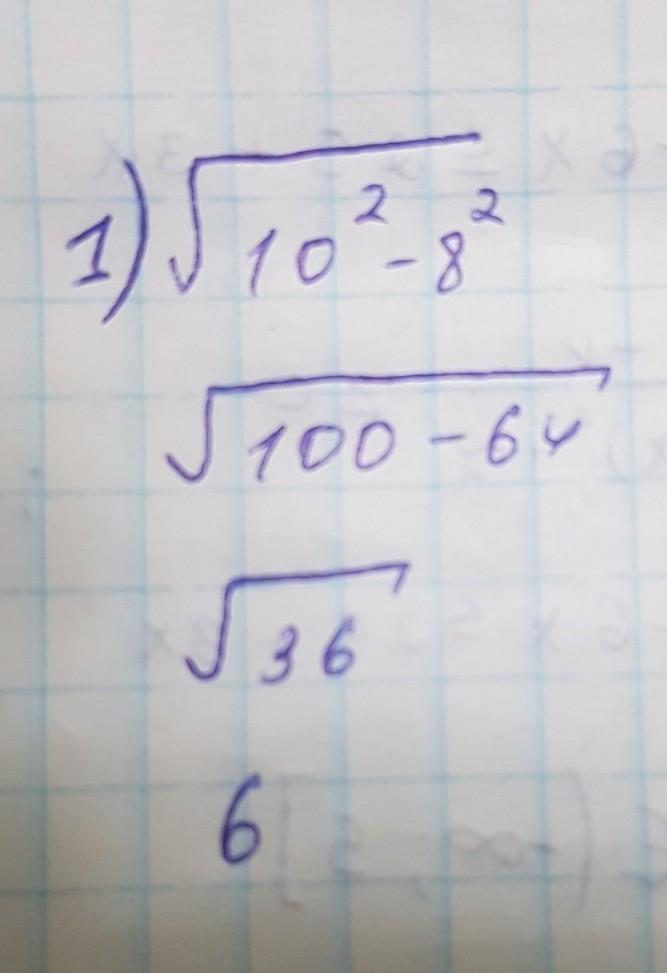 1) √10² - 8²
√100 - 64
√36
6